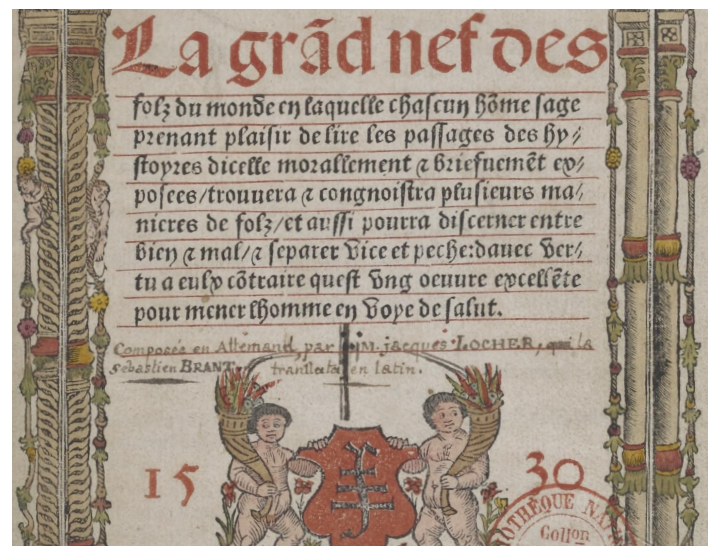 La grãd nef des
folz du monde en laquelle chascun hõme sage
prenant plaisir de lire les passages des hy⸗
stoyres dicelle morallement ⁊ briefuemẽt ex⸗
posees/trouuera ⁊ congnoistra plusieurs ma⸗
nieres de folz/et aussi pourra discerner entre
bien ⁊ mal/⁊ separer vice et peche:dauec ver⸗
tu a eulx cõtraire quest vng oeuure excellẽte
pour mener lhomme en voye de salut.
Composée en Allemand, par M. jacques LOCHER, qui la
sebastien BRANT. translata en latin.
15 30
OTHÈQUE NAT
Collon